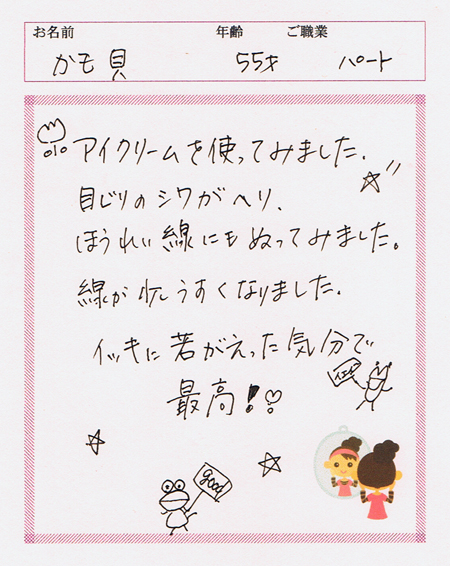 お名前 年齢 ご職業
かも貝 55才 パート
アイクリームを使ってみました.
目じりのシワがへり、
ほうれい線にもぬってみました。
線が少しうすくなりました.
イッキに若がえった気分で
最高!!
good